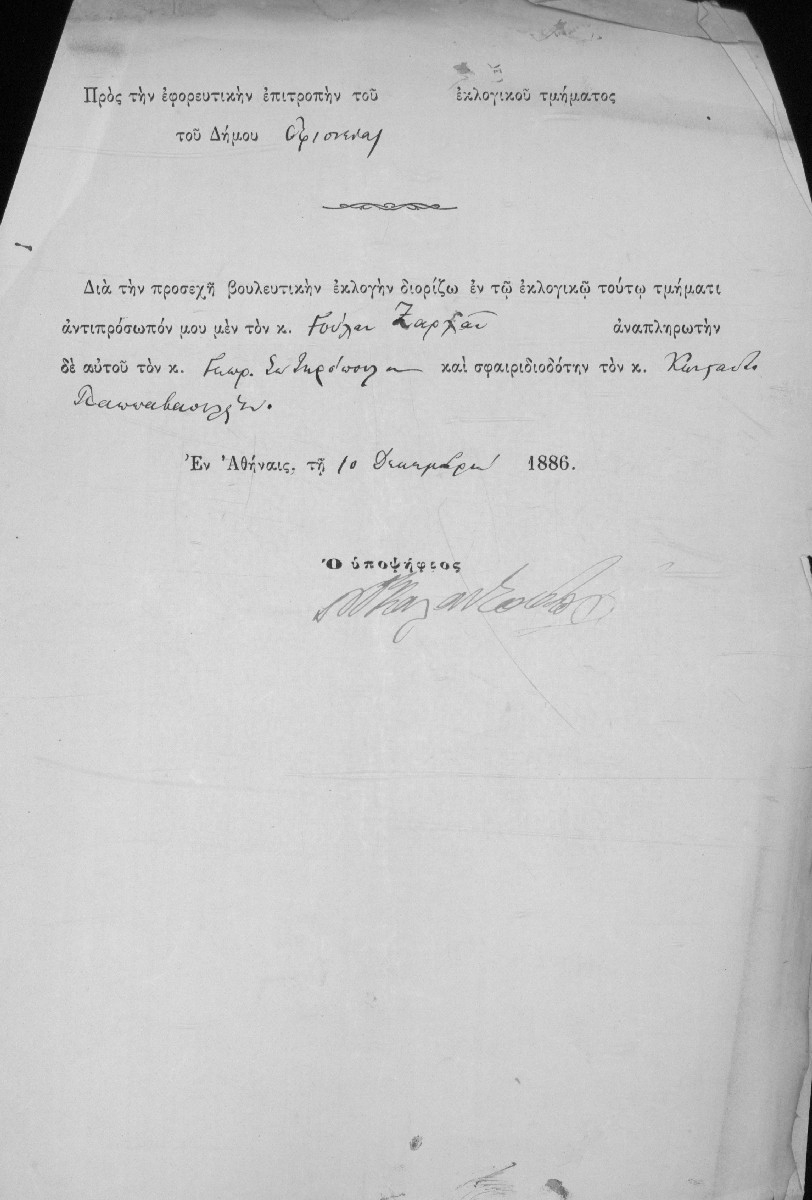 Πρὸς τὴν ἐφορευτικὴν ἐπιτροπὴν τοῦ ἐκλογικοῦ τμήματος
τοῦ Δήμου
Διὰ τὴν προσεχῆ βουλευτικὴν ἐκλογὴν διορίζω ἐν τῷ ἐκλογικῷ τούτῳ τμήματι
ἀντιπρόσωπόν μου μὲν τὸν κ. Γούλαν Ζαρκᾶν ἀναπληρωτὴν
δὲ αὐτοῦ τὸν κ. Γεωρ. Σωτηρόπουλον καὶ σφαιριδιοδότην τὸν κ.
Παππαβασιλείου.
Ἐν Ἀθήναις, τῇ 10 Δεκεμβρίου 1886.
Ὁ ὑποψήφιος